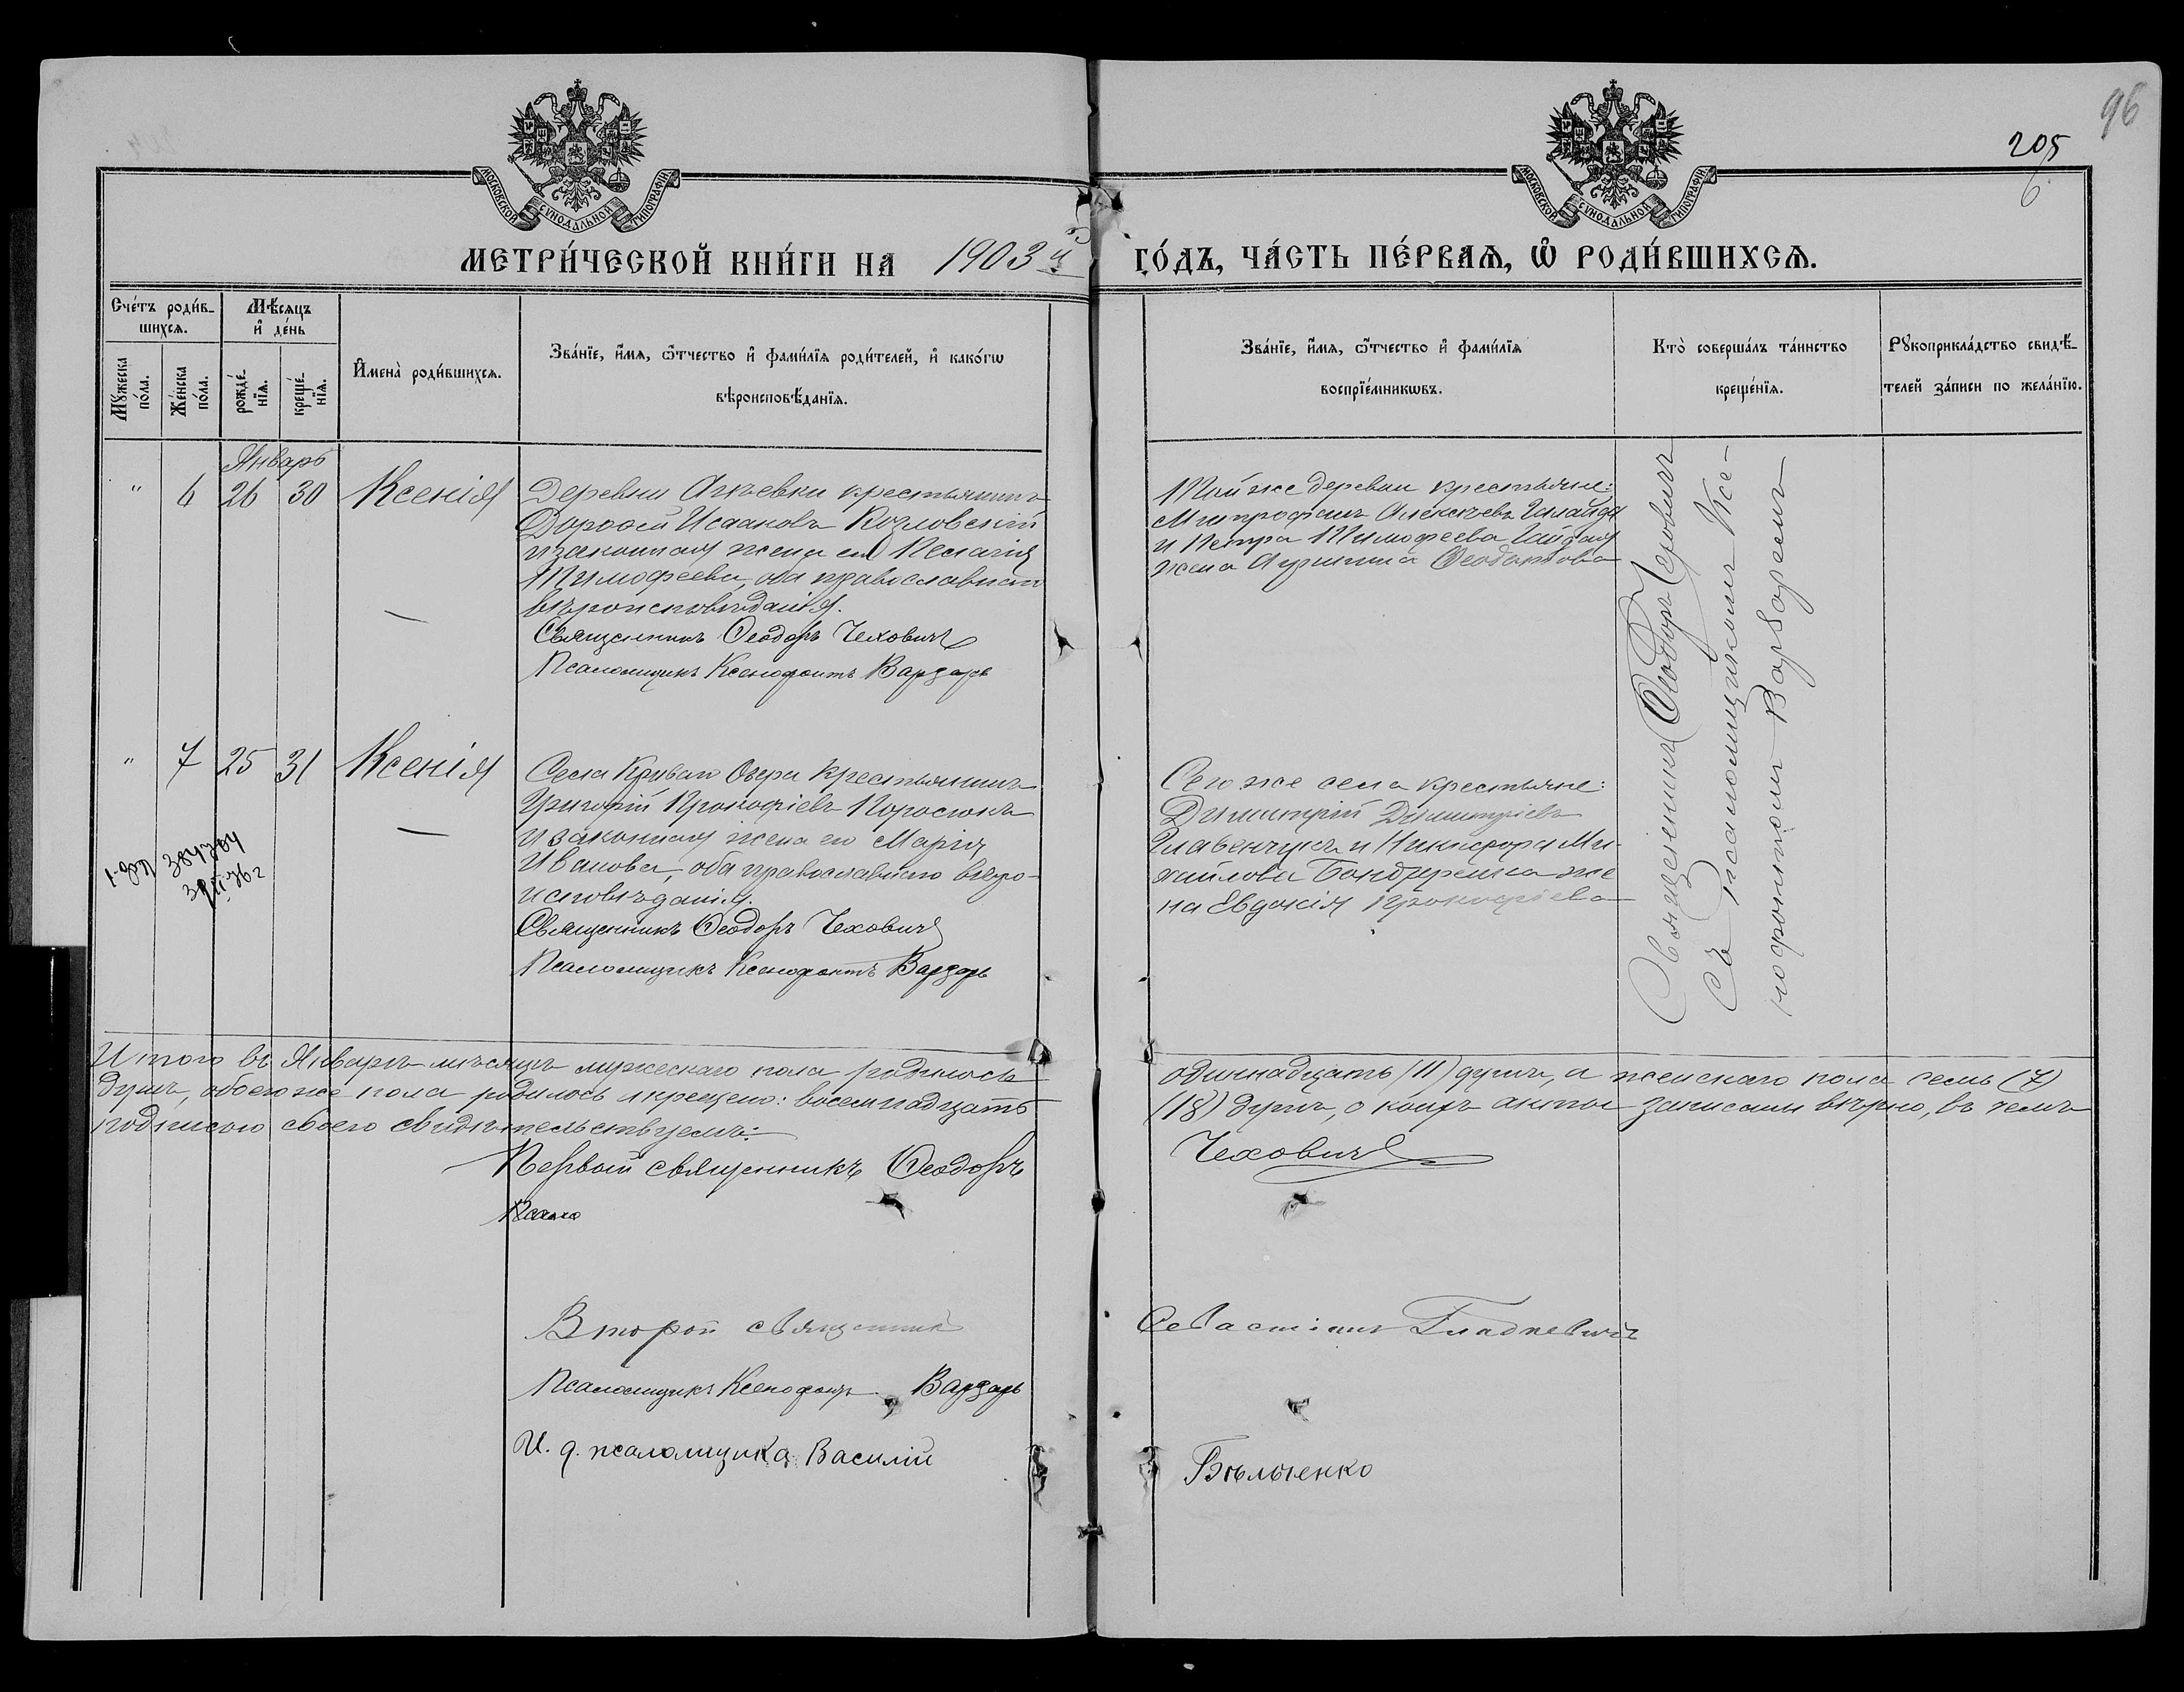 96
205
6
МОСКОВСКОЙ СУНОДАЛЬНОЙ ТИПОГРАФІИ
МОСКОВСКОЙ СУНОДАЛЬНОЙ ТИПОГРАФІИ
МЕТРИ́ЧЕСКОЙ КНИ́ГИ НА 1903 й ГО́ДЪ, ЧА́СТЬ ПЕ́РВАѦ, Ѡ҆ РОДИ́ВШИХСѦ.
Сче́тъ роди́в-
шихсѧ.
Мꙋ́жеска по́ла.
Же́нска по́ла.
Мѣ́сѧцъ
и҆ де́нь
рожде́-
нїѧ.
креще́-
нїѧ.
И҆мена̀ роди́вшихсѧ.
Зва́нїе, и҆́мѧ, ѻ҆́тчество и҆ фами́лїѧ роди́телей, и҆ како́гѡ
вѣроисповѣ́данїѧ.
Зва́нїе, и҆́мѧ, ѻ҆́тчество и҆ фами́лїѧ
воспрїе́мникѡвъ.
Кто̀ соверша́лъ та́инство
креще́нїѧ.
Рꙋкоприкла́дство свидѣ́-
телей за́писи по жела́нїю.
Январь
" 6 26 30 Ксенія
Деревни крестьянинъ
Дороѳей Исааковъ Козловскій
и законная жена его Пелагія
Тимофеева, оба православнаго
вѣроисповѣданія.
Священникъ Ѳеодоръ Чеховичъ
Псаломщикъ Ксенофонтъ Варзарь
Той же деревни крестьяне:
Митрофанъ Алексѣевъ
и Петра Тимофеева
жена Ѳеодотова
Священникъ Ѳеодоръ Чеховичъ
съ псаломщикомъ Ксе-
нофонтомъ Варзаремъ
" 7 25 31 Ксенія
Села Криваго Озера крестьянинъ
Григорій Прокофіевъ Поросюкъ
и законная жена его Марія
Иванова, оба православнаго вѣро-
исповѣданія.
Священникъ Ѳеодоръ Чеховичъ
Псаломщикъ Ксенофонтъ Варзарь
Сего же села крестьяне:
Димитрій Димитріевъ
и Никифора Ми-
хайлова Бондаренка же
на Евдокія Прокофіева
Итого въ Январѣ мѣсяцѣ мужескаго пола родилось одиннадцать (11) душъ, а женскаго пола семь (7)
душъ, обоего же пола родилось и крещено: восемнадцать (18) душъ, о коихъ акты записаны вѣрно, въ чемъ
подписью своею свидѣтельствуемъ:
Первый священникъ Ѳеодоръ Чеховичъ
Псало
Второй священникъ Севастіанъ Гладкевичъ
Псаломщикъ Ксенофонтъ Варзарь
И. д. псаломщика Василій Бѣльченко